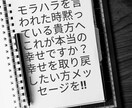 モラハラを言
われた時黙っ
ている貴方へ
これが本当の
幸せですか？
幸せを取り戻
したい方メッ
セージを!!